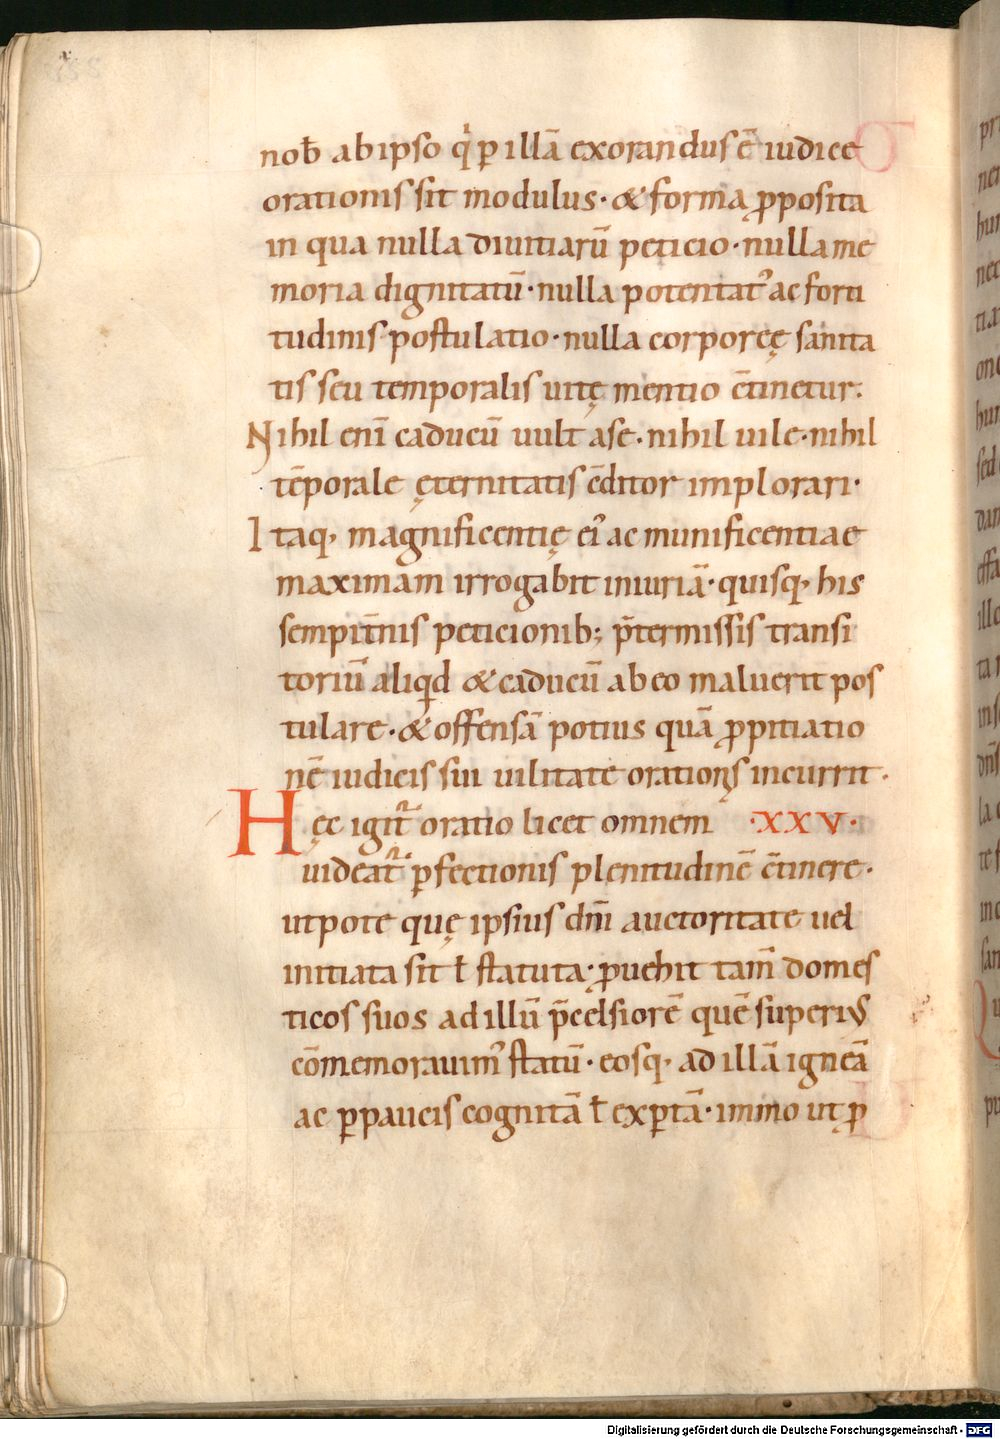 nob̄ ab ipso q̇ p̱ illā exorandus ē iudice
orationis sit modulus· & forma ꝓposita
in qua nulla diuitiarū peticio· nulla me
moria dignitatū· nulla potentat᾿ ac forti
tudinis postulatio· nulla corporeę sanita
tis seu temporalis uitę mentio c̄tinetur.
Nihil enī caducū uult a se· nihil uile· nihil
tēporale ęternitatis cōditor implorari·
Itaq, magnificentię ei᾿ ac munificentiae
maximam irrogabit iniuriā· quisq, his
sempit̄nis peticionib; p̄termissis transi
toriū aliqid & caducū ab eo maluerit pos
tulare· & offensā potius quā ꝓpitiatio
nē iudicis sui uilitate orationis incurrit·
Hęc igit᷑ oratio licet omnem ·XXV·
uideat᷑ ꝑfectionis plenitudinē c̄tinere·
utpote quę ipsius dn̄i auctoritate uel
initiata sit ł statuta· ꝓuehit tam̄ domes
ticos suos ad illū p̄celsiorē quē superius
cōmemorauim᾿ statū· eosq, ad illā igneā
ac ꝑpaucis cognitā ł exꝑtā· immo ut ꝓ
Digitalisierung gefördert durch die Deutsche Forschungsgemeinschaft - DFG